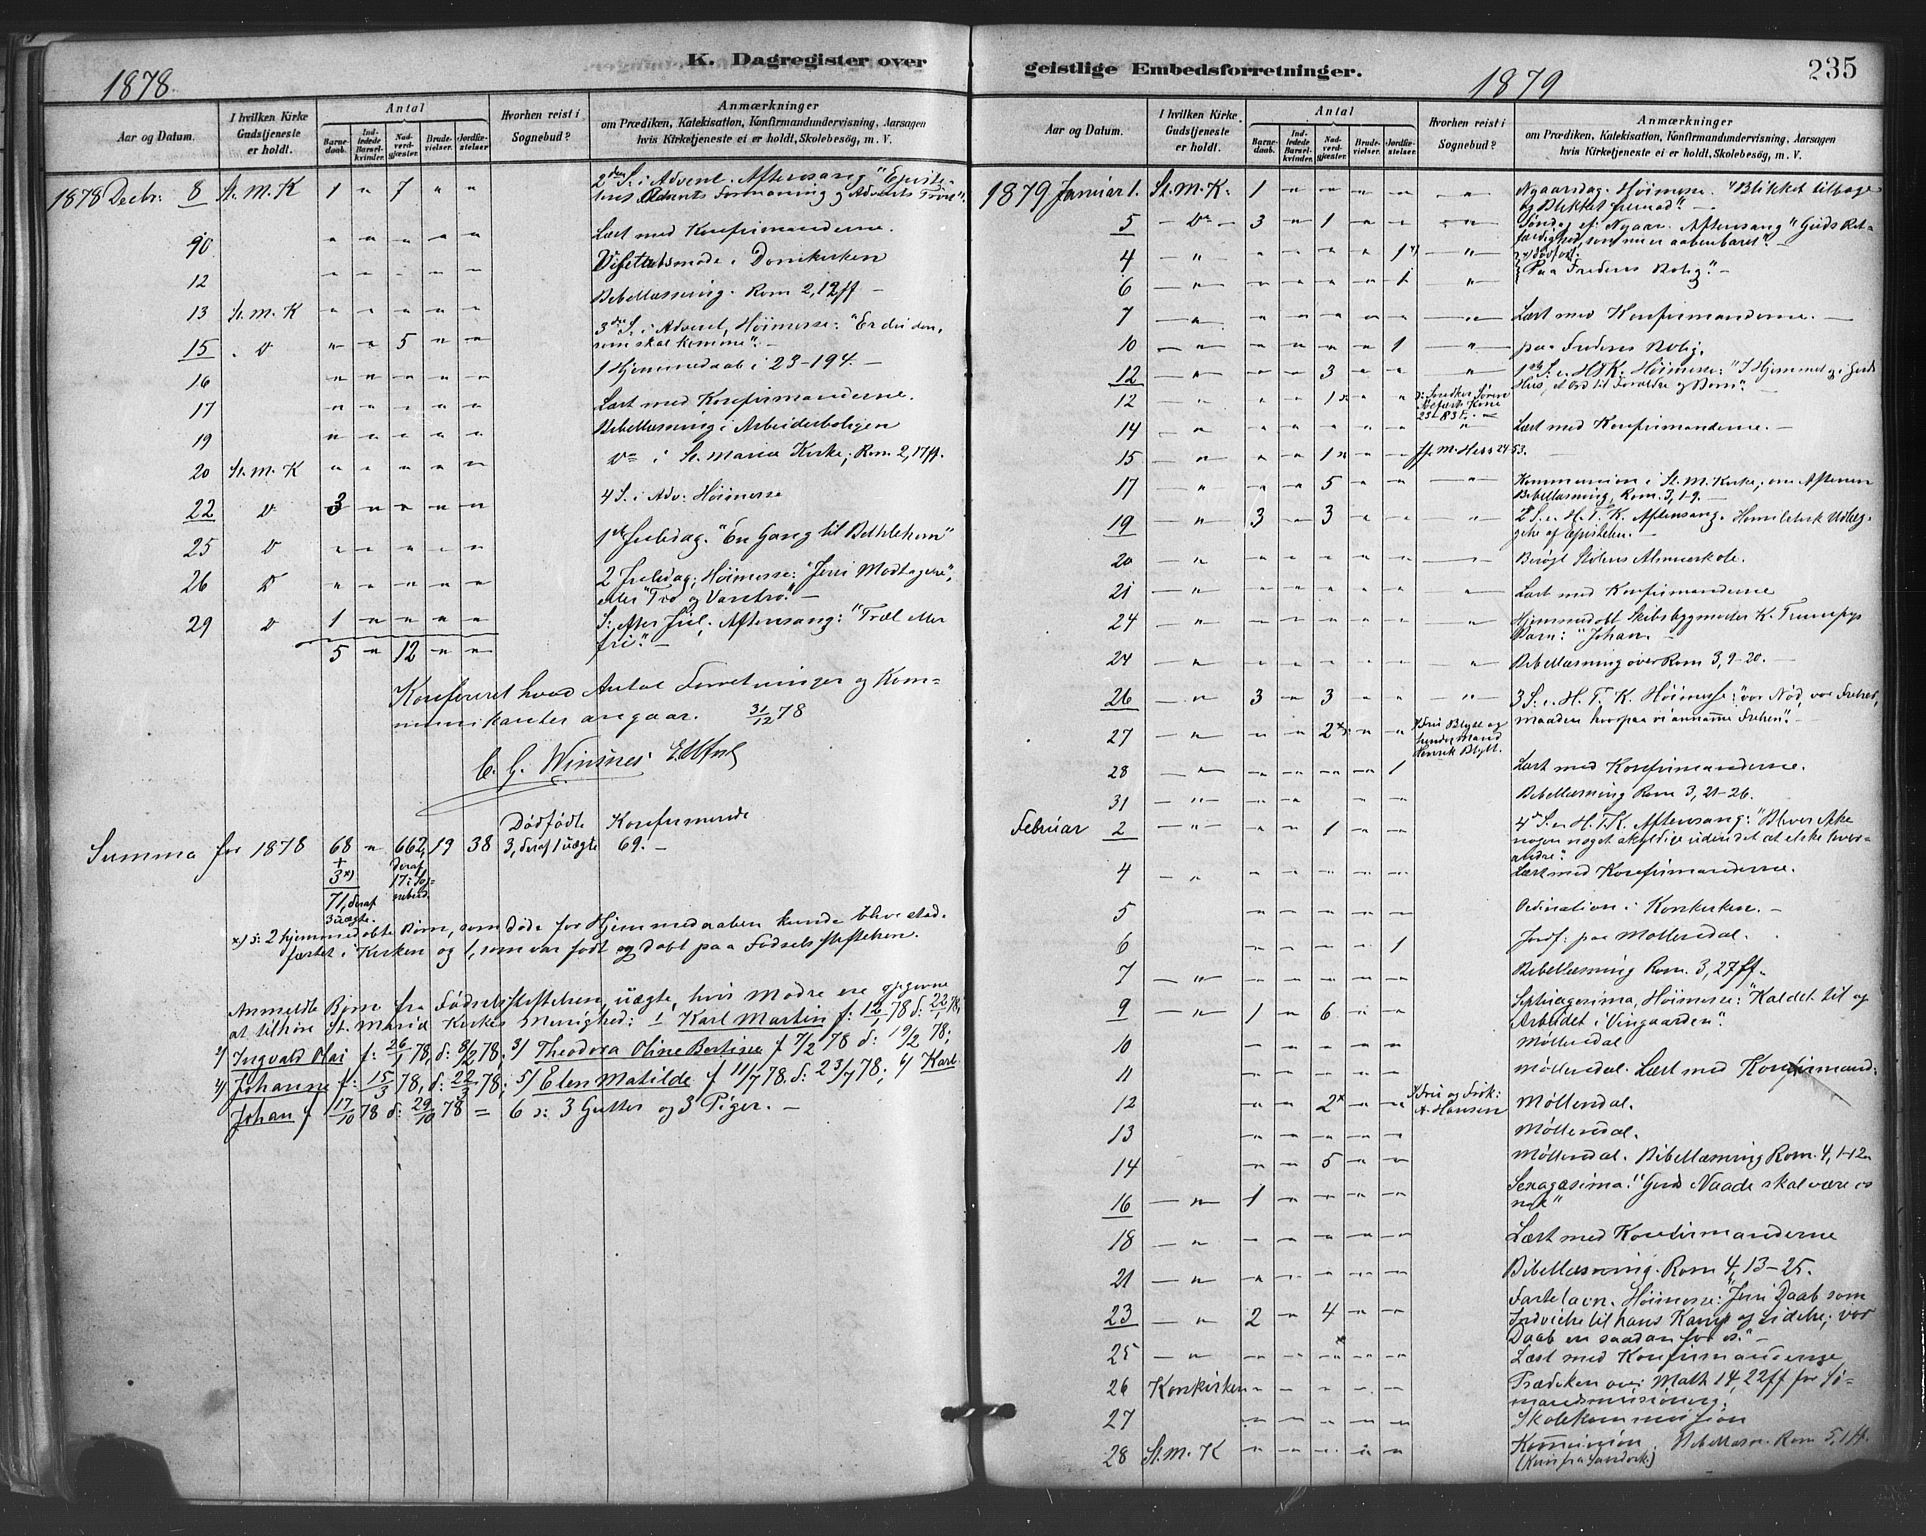 K. Dagregister over
1878.
Aar og Datum.
I hvilken Kirke Gudstjeneste er holdt.
Antal
Barnedaab. Indledede Barselkvinder. Nadverdgjæster. Brudevielser. Jordfæstelser.
Hvorhen reist i Sognebud?
Anmærkninger
om Prædiken, Katekisation, Konfirmandundervisning, Aarsagen
hvis Kirketjeneste ei er holdt, Skolebesög, m. V.
1878 Decbr. 8 St. M. K 1 " 7 " " 2den S. i Advent. Aftensang "Episte-
lens Advents Formaning og Advents
" " " " " Læst med Konfirmanderne.
10 " " " " " i Domkirken
12 " " " " " Bibellæsning. Rom 2,12ff —
13 St. M. K " " " " " 3die S. i Advent, Höimesse: "Er du den,
15 " " 5 " " som skal komme". —
1 Hjemmedaab i 23-194. —
16 " " " " " Læst med Konfirmanderne.
17 " " " " " Bibellæsning i Arbeiderboligen
19 " " " " " i St. Maria Kirke, Rom. 2,17ff.
20 St. M. K " " " " "
22 3 " " " " 4 S. i Adv: Höimesse
25 " " " " " 1ste Juledag. "En Gang til Bethlehem"
26 " " " " " 2 Juledag; Höimesse: "Jesu Modtagelse",
eller "Tro og Vantro." —
29 1 " " " " S: efter Jul; Aftensang: "Træl eller
fri". —
5 " 12 " "
Konfereret hvad Antal Forretninger og Kom-
munikanter angaar. 31/12 78
C. G. Winsnes
Dödfödte Konfirmerede
Summa for 1878 68 " 662, 19 38 3, deraf 1 uægte 69. —
+ deraf
3 x) 17 i Sog-
71, deraf nebud.
3 uægte.
x) o: 2 hjemmedöbte Börn, som döde för Hjemmedaaben kunde blive stad-
fæstet i Kirken og 1, som var födt og döbt paa Födselsstiftelsen.
Anmeldte Börn fra Födselsstiftelsen, uægte, hvis Mödre ere opgivne
at tilhöre St. Maria Kirkes Menighed: 1 Karl Martin f: 12/1 78 d: 22/1 78,
2/ Ingvald Olai f: 26/1 78, d: 8/2 78, 3/ Theodora Oline Bertine f 7/2 78 d: 19/2 78;
4/ Johanne f: 15/3 78, d: 22/3 78; 5/ Elen Matilde f 11/7 78. d: 23/7 78; 6/ Karl
Johan f 17/10 78 d: 29/10 78 = 6 o: 3 Gutter og 3 Piger. —
geistlige Embedsforretninger.
1879
235
Aar og Datum.
I hvilken Kirke Gudstjeneste er holdt.
Antal
Barnedaab. Indledede Barselkvinder. Nadverdgjæster. Brudevielser. Jordfæstelser.
Hvorhen reist i Sognebud?
Anmærkninger
om Prædiken, Katekisation, Konfirmandundervisning, Aarsagen
hvis Kirketjeneste ei er holdt, Skolebesög, m. V.
1879 Januar 1. St. M. K. 1 " " " " " Nyaarsdag. Höimesse. "Blikket tilbage
og Blikket fremad". —
5 3 " 1 " " " Söndag ef. Nyaar. Aftensang "Guds Ret-
færdighed, som nu er aabenbaret".
4 " " " " " 1 " dödfödt.
6 " " " " " 1 " Paa Fredens Bolig" —
7 " " " " " " " Læst med Konfirmanderne. —
10 " " " " " 1 " paa Fredens Bolig.
12 " " " 3 " " " 1ste S. e. H3K. Höimesse: "I Hjemmet og i Guds
Hus, et Ord til Forældre og Börn".
12 " " " 1x " " Kone
14 " " " " " " " Læst med Konfirmanderne. —
15 " " " 1x " " M. Hess 24-53.
17 " " " 5 " " " Kommunion i St. M. Kirke, om Aftenen
Bibellæsning, Rom. 3,1-9. —
19 " 3 " 3 " " " 2 S. e. H. T. K. Aftensang. Homiletisk Udlæg-
gelse af Epistelen. —
20 " " " " " " " Besögt Stölens Almueskole.
21 " " " " " " " Læst med Konfirmanderne
24 " " " " " " " Hjemmedöbt Skibsbygmester K. Trumpys
Barn: "Johan". —
24 " " " " " " " Bibellæsning over Rom 3, 9-20. —
26 " 3 " 3 " " " 3 S. e. H. T. K Höimesse: "vor Nöd, vor Frelser,
maaden hvorpaa vi annamme Frelsen". —
27 " " " 2x " " Fru Blytt og
hendes Mand
Henrik Blytt.
28 " " " " " 1 Læst med Konfirmanderne.
31 " " " " " Bibellæsning Rom 3, 21-26.
Februar 2 " " " 1 " " 4de S. e. H.T.K. Aftensang: "Bliver ikke
nogen noget skyldige uden det at elske hver-
andre".
4 " " " " " " Læst med Konfirmanderne.
5 " " " " " Ordination i Korskirken. —
6 " " " " 1 Jordf: paa Möllendal.
7 " " " " " " Bibellæsning Rom. 3, 27ff.
9 " 1 " 6 " " Septuagesima, Höimesse: "Kaldet til og
Arbeidet i Vingaarden".
10 " " " " " Möllendal
11 " " " " " Möllendal. Læst med Konfirmand:
12 " " 2x " " Fru og Frök:
A. Hansen Möllendal.
13 " " " " " Möllendal.
14 " " 5 " " Möllendal. Bibellæsning Rom. 4, 1-12.
16 " 1 " " " " Sexagesima. "Guds Naade skal være os
nok"
18 " " " " " " Læst med Konfirmanderne
21 " " " " " " Bibellæsning. Rom 4, 13-25.
23 " 2 " 4 " " Fastelavn. Höimesse: "Jesu Daab som
Indvielse til hans Kamp og Lidelse; vor
Daab en saadan for os." —
25 " " " x " " Læst med Konfirmanderne
26 Korskirken " " " " " Prædiken over Math 14, 22ff for Sö-
mandsmissionen;
27 " " " " " Skolekommission
28 St. M. K " " " " " Kommunion. Bibellæsn. Rom 5, 1ff.
(Kun fra Sandvik.)